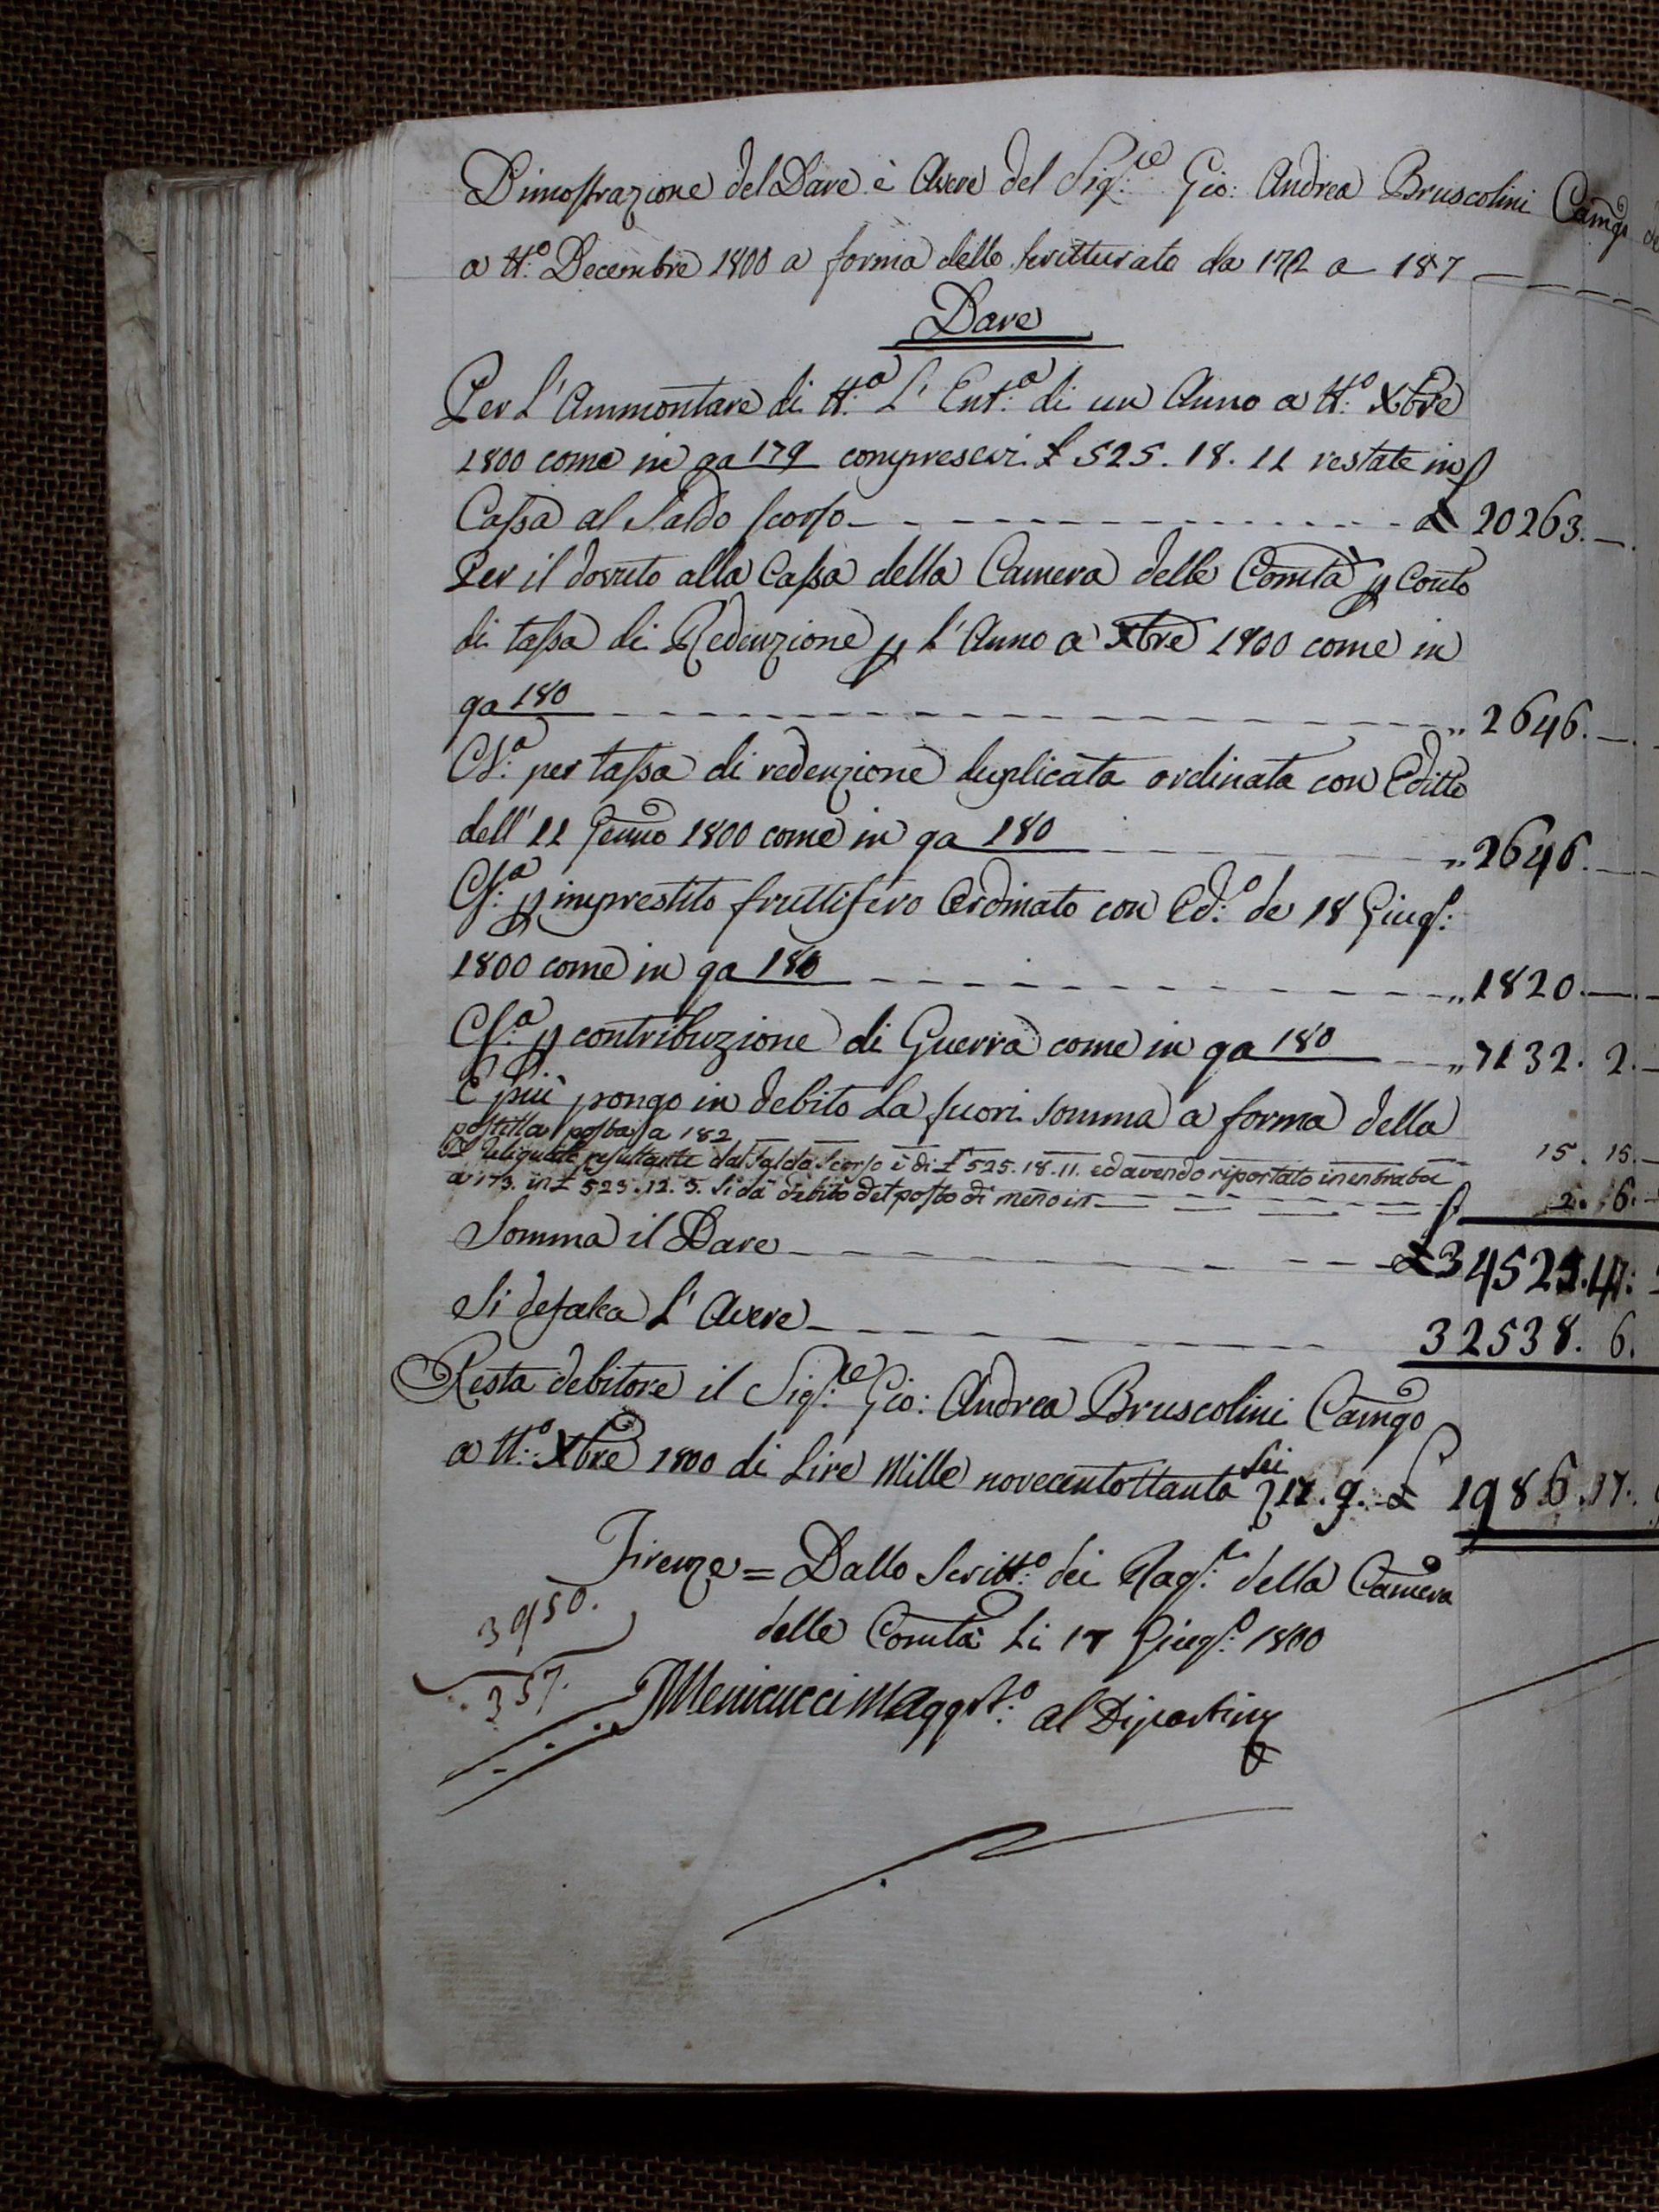 Dimostrazione del Dare è Avere del Sig:re Gio: Andrea Bruscolini Camgo
a tt:o Decembre 1800 a forma dello scritturato da 172 a 187
Dare
Per L'Ammontare di tt:a L' Ent:a di un Anno a tt:o Xbre
1800 come in qa 179 compresevi £ 525. 18. 11 restate in
Cassa al Saldo scorso £ 20263. —
Per il dovuto alla Cassa della Camera delle Comtà p Conto
di tassa di Redenzione p L'Anno a Xbre 1800 come in
qa 180 „ 2646. —
Cs:a per tassa di redenzione duplicata ordinata con Editto
dell' 11 Genno 1800 come in qa 180 „ 2646. —
Cs:a p imprestito fruttifero Ordinato con Ed:o de 18 Giug:
1800 come in qa 180 „ 1820. —
Cs:a p contribuzione di Guerra come in qa 180 „ 7132. 2. —
E più pongo in debito La fuori somma a forma della
postilla posta a 182 15. 15. —
resultante dal Saldo Scorso è di £ 525. 18. 11. ed avendo riportato in entrata
a 173. in £ 523. 12. 5. si dà debito del posto di meno in 2. 6. —
Somma il Dare £ 34525. 4:
Si defalca L' Avere 32538. 6.
Resta debitore il Sig:re Gio: Andrea Bruscolini Camgo
a tt:o Xbre 1800 di Lire Mille novecentottanta Sei 17. 9. £ 1986. 17.
Firenze = Dallo Scritt:o dei Rag:i della Camera
delle Comtà Li 17 Giug:o 1800
3950.
357.
Menicucci al